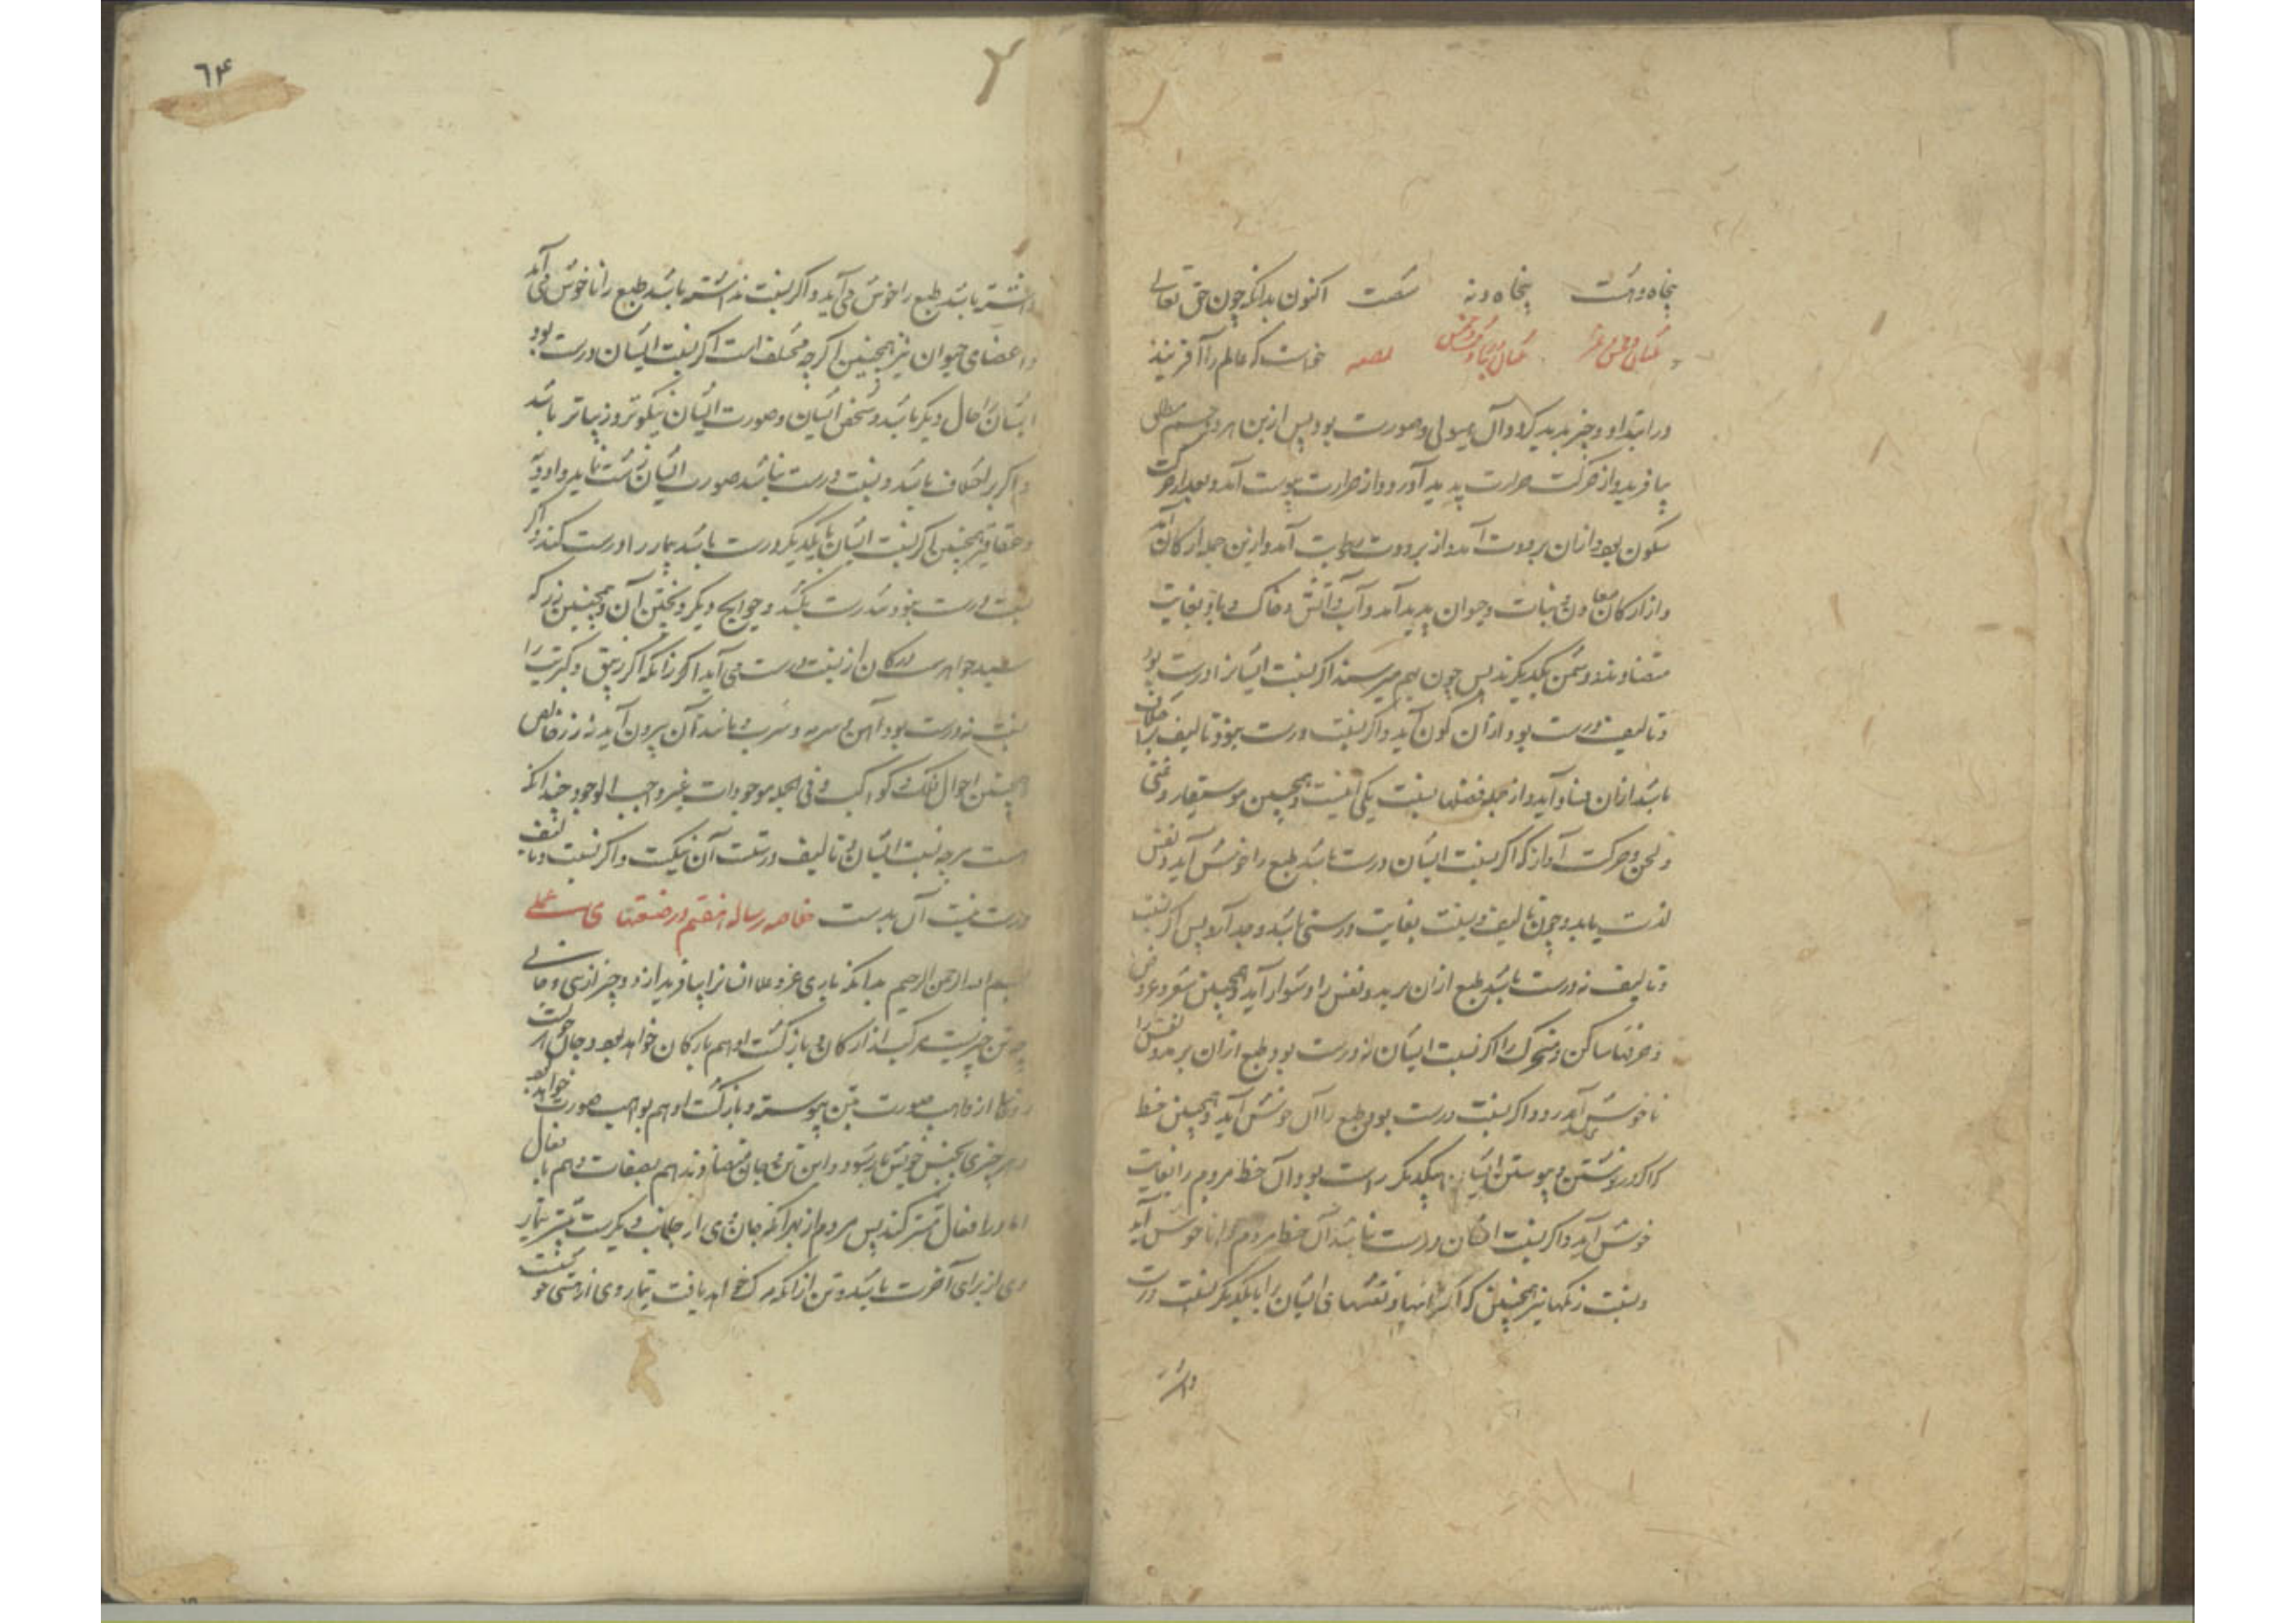 پنجاه و هشت پنجاه و نه شصت اکنون بدانکه چون حق تعالی
خواست که عالم را آفریند
در ابتدا دو چیز پدید کرد و آن هیولی و صورت بود پس ازین هر دو جسم مطلق
بیافرید و از حرکت حرارت پدید آورد و از حرارت یبوست آمد و بعد از حرکت
سکون بود و ازان برودت آمد و از برودت رطوبت آمد و ازین جمله ارکان آمد
و از ارکان معادن و نبات و حیوان پدید آمد و آب و آتش و خاک و باد بغایت
متضادند و دشمن یکدیگرند پس چون بهم میرسند اگر نسبت ایشانرا درست بود
و تالیف درست بود ازان کون آید و اگر نسبت درست نبود و تالیف بر خلاف
باشد ازان فساد آید و از جمله فضلها نسبت یکی اینست و همچنین موسیقار و غنی
و لحن و حرکت آواز که اگر نسبت ایشان درست باشد طبع را خوش آید و نفس
لذت یابد و چون تالیف و نسبت بغایت درستی باشد وجد آرد پس اگر نسبت
و تالیف نه درست باشد طبع ازان برمد و نفس را دشوار آید همچنین شعر و عروض
و حرفها ساکن و متحرک را اگر نسبت ایشان نه درست بود طبع ازان برمد و نفس را
ناخوش آید و اگر نسبت درست بود طبع را آن خوش آید و همچنین خط
که اگر در نوشتن و پیوستن ایشان بهیکدیگر راست بود آن خط مردم را بغایت
خوش آید و اگر نسبت ایشان درست نباشد آن خط مردم را ناخوش آید
و نسبت رنگها نیز همچنین که اگر و نقشهای ایشان را بایکدیگر نسبت درست
داشته
٦۴
داشته باشد طبع را خوش می آید و اگر نسبت نداشته باشد طبع را ناخوش می آید
و اعضای حیوان نیز همچنین اگر چه مختلف است اگر نسبت ایشان درست بود
ایشان را حال دیگر باشد و شخص ایشان و صورت ایشان نیکوتر و زیباتر باشد
و اگر بر اختلاف باشد و نسبت درست نباشد صورت ایشان زشت نماید و ادویه
و عقاقیر همچنین اگر نسبت ایشان بایکدیگر درست باشد بیمار را درست کند و اگر
نسبت درست نبود تندرست بکشد و حوایج دیگ و پختن آن و همچنین زر که
سید جواهرست در کان از نسبت درست می آید اگر زانکه اگر زیبق و کبریت را
نسبت نه درست بود آهن و سرمه و سرب و مانند آن بیرون آید نه زر خالص
همچنین احوال فلک و کواکب و فی الجمله موجودات غیر واجب الوجود چندانکه
هست هرچه نسبت ایشان و تالیف درستست آن نیکست و اگر نسبت و تالیف
درست نیست آن بدست خلاصه رساله هفتم در صنعتها ی علمی
بسم الله الرحمن الرحیم بدانکه باری عز و علا انسانرا بیافرید از دو چیز از تنی و جانی
چه تن چیزیست مرکب از ارکان و بازگشت او هم بارکان خواهد بود و جان
از واهب صورت بتن پیوسته و بازگشت او هم بواهب صورت خواهد بود
و هر چیزی بجنس خویش باز شود و این تن و جان متضادند هم بصفات و هم بافعال
اما در افعال مشترکند پس مردم از بهر آنکه جان وی از جانب دیگرست بیشتر تیمار
وی از برای آخرت باشد و تن از آنکه مرگ خواهد یافت تیمار وی